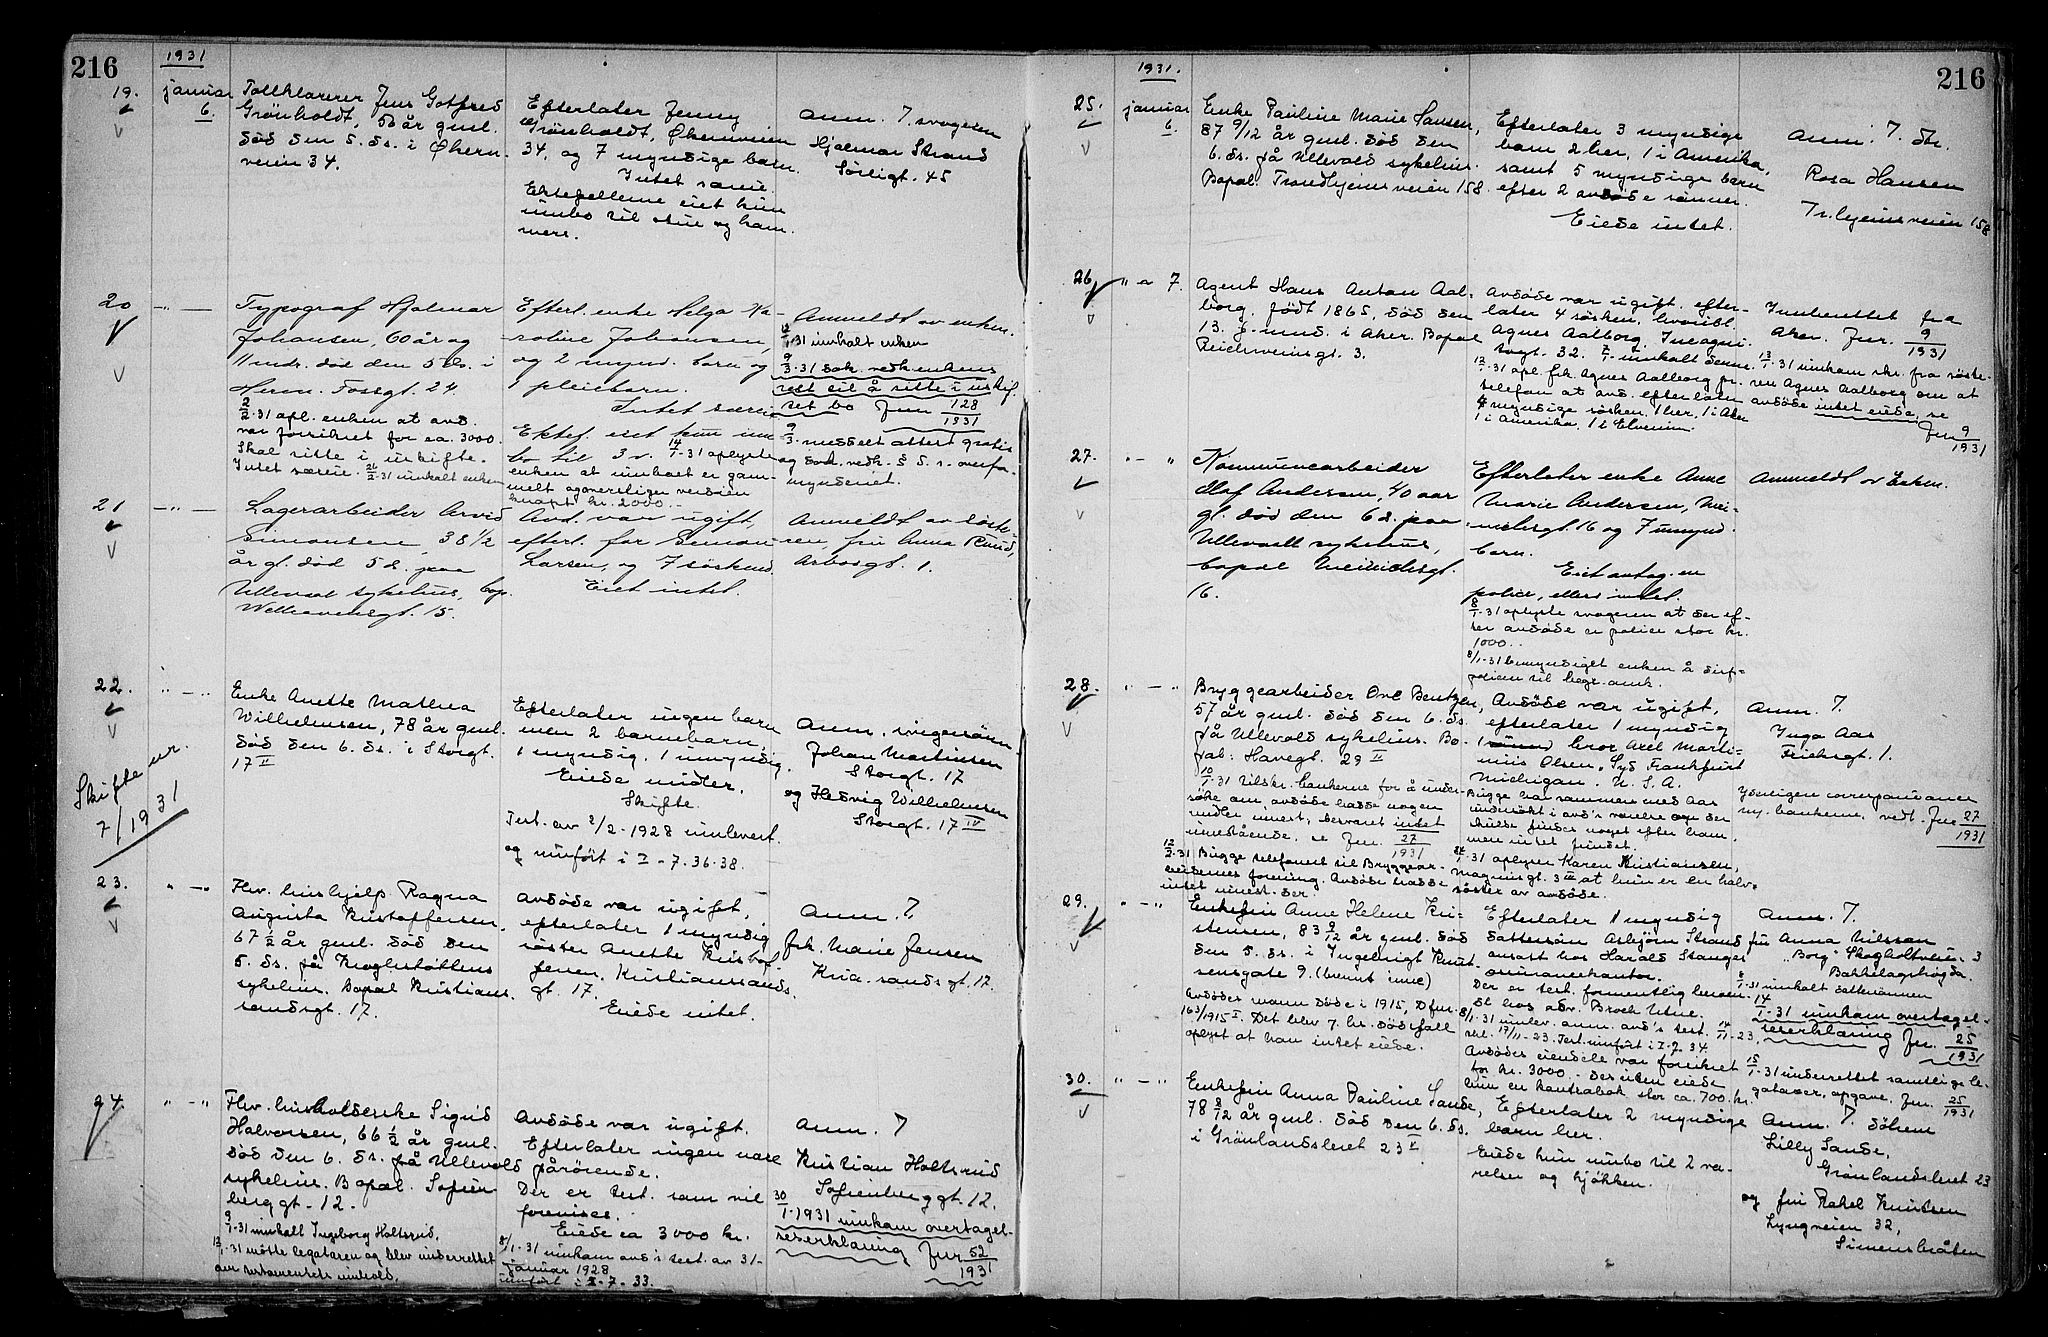 216
1931
19.
januar
6.
Tollklarerer Jens Gotfred
Grönholdt, 58 år gml.
död den 5. ds. i Økern-
veien 34.
Efterlater Jenny
Grönholdt, Økernveien
34, og 7 myndige barn.
Intet særeie.
Ektefellene eiet kun
innbo til stue og kam-
mers.
Anm. 7. svogeren
Hjalmar Strand
Sörligt. 45
20
— " —
Typograf Hjalmar
Johansen, 60 år og
11 mdr. död den 5 ds. i
Herm. Fossgt. 24.
2/2-31 opl. enken at avd.
var forsikret for ca. 3000.
Skal sitte i uskifte.
Intet særeie. 21/2-31 innkalt enken
Efterl. enke Helga Ka-
roline Johansen,
og 2 mynd. barn og
1 pleiebarn.
Intet særeie
Ektef. eiet kun inn-
bo til 3 v. 14/1-31 oplyste
enken at innboet er gam-
melt og oversliger verdien
knapt kr. 2000.-
Anmeldt av enken.
1-31 innkalt enken
9/3-31 sok. vedk. enkens
rett til å sitte i uskif-
tet bo Jnr 128/1931
9/3. meddelt attest gratis
og sod. vedk. § 5. s. overfor-
mynderiet.
21
— " —
Lagerarbeider Arvid
Simonsen, 38 1/2
år gl. död 5 d. paa
Ullevaal sykehus, bop.
Welhavensgt. 15.
Avd. var ugift,
efterl. far Simon
Larsen, og 7 söskend.
Eiet intet.
Anmeldt av söste-
ren, fru Anna Ruud,
Arbosgt. 1.
22.
" — "
Skifte nr.
7/1931
Enke Anette Mathea
Wilhelmsen, 78 år gml.
död den 6. ds. i Storgt.
17 II
Efterlater ingen barn
men 2 barnebarn,
1 myndig, 1 umyndig.
Eiede midler.
Skifte.
Test. av 2/2-1928 innlevert
og innfört i I-7-36-38.
Anm. svigersönn
Johan Martinsen
Storgt. 17
og Hedvig Wilhelmsen
Storgt. 17 IV
23.
" — "
Fhv. hushjelp Ragna
Augusta Kristoffersen,
67 1/2 år gml. död den
5. ds. på Krogstöttens
sykehus. Bopæl Kristian-
sandsgt. 17.
Avdöde var ugift,
efterlater 1 myndig
söster Anette Kristof-
fersen, Kristiansands-
gt. 17.
Eiede intet.
Anm. 7.
frk. Marie Jensen
Kria.sandsgt. 17.
24
" — "
Fhv. husholderske Sigrid
Halvorsen, 66 1/2 år gml.
död den 6. ds. på Ullevold
sykehus. Bopæl. Sofien-
berggt. 12.
9/1-31 innkalt Ingeborg Holtsrud.
13/1-31 mötte legataren og blev underrettet
om testamentets innhold.
Avdöde var ugift.
Efterlater ingen nære
pårörende.
Der er test. som vil
forevises.
Eiede ca 3000 kr.
8/1-31 innkom avd's test. av 31-
januar 1928
innfört i I-7-33.
Anm. 7
Kristian Holtsrud
Sofienberggt. 12.
30/1-1931 innkom overtagel-
seserklæring Jnr 52/1931
216
1931.
25.
januar
6.
Enke Pauline Marie Hansen,
87 9/12 år gml. död den
6. ds. på Ullevold sykehus.
Bopæl: Trondhjemsveien 158.
Efterlater 3 myndige
barn 2 her, 1 i Amerika,
samt 5 myndige barn
efter 2 avdöde sönner.
Eiede intet.
Anm. 7. dtr.
Rosa Hansen
Tr.hjemsveien 158
26
" " 7.
Agent Hans Anton Aal-
borg, födt 1865, död den
13. f. mnd. i Aker. Bopæl
Reichweinsgt. 3.
Avdöde var ugift, efter-
later 4 sösken, hvoribl.
Agnes Aalborg, Incogni-
togt. 32. 7/1 innkalt denne.
12/1-31 opl. frk. Agnes Aalborg pr.
telefon at avd. efterlater
4 myndige sösken, 1 her, 1 i Aker
1 i Amerika, 1 i Elverum.
Innberettet fra
Aker. Jnr. 9/1931
13/1-31 innkom skr. fra söste-
ren Agnes Aalborg om at
avdöde intet eiede, se
Jnr 9/1931
27.
" — "
Kommunearbeider
Olaf Andersen, 40 aar
gl. död den 6 d. paa
Ullevaall sykehus,
bopæl Meinichsgt.
16.
Efterlater enke Anne
Marie Andersen, Mei-
nichsgt. 16 og 7 umynd.
barn.
Eiet antag. en
police, ellers intet.
8/1-31 oplyste svogeren at der ef-
ter avdöde er police stor kr.
1000.-
8/1-31 bemyndiget enken å disp-
policen til begr. omk.
Anmeldt av Enken.
28.
" — "
Bryggearbeider Ove Bentzen,
57 år gml. död den 6. ds.
på Ullevold sykehus. Bo-
pæl: Havegt. 29 II
10/1-31 tilskr. bankene for å under-
söke om avdöde hadde nogen
midler innest., besvaret intet
innestående, se Jnr. 27/1931
12/2-31 Bugge telefonert til Bryggear-
beidernes forening. Avdöde hadde
intet innest. der.
Avdöde var ugift,
efterlater 1 myndig
bror Axel Marti-
nius Olsen, Syd Frankfurt
Michigan. U. S. A.
Bugge har sammen med Aas
undersökt i avd's værelse om der
skulde findes noget efter ham,
men intet fundet.
24/1-31 oplyser Karen Kristiansen,
Magnusgt. 3 III at hun er en halv-
söster av avdöde.
Anm. 7.
Inga Aas
Friesgt. 1.
Yderligere correspondance
m/ bankene, vedl. Jnr 27/1931
29.
" — "
Enkefru Anne Helene Kri-
stensen, 83 9/12 år gml. död
den 5. ds. i Ingebrigt Knut-
sensgate 9. (brent inne)
Avdödes mann döde i 1915, D fnr.
163/1915 I. Det blev 7. hr. dödsfall
oplyst at han intet eiede.
Efterlater 1 myndig
dattersönn Asbjörn Strand
ansatt hos Harald Stanges
assuransekontor.
Der er test. formentlig beroen-
de hos adv. Broch Utne.
8/1-31 innlev. anm. avd's test. 14/11-23,
skl. 17/11-23. Test. innfört i I-7-34.
Avdödes eiendele var forsikret
for kr. 3000.- Desuten eiede
hun en kontrabok stor ca. 700 kr.
Anm. 7.
fru Anna Nilsson
"Borg" Skogholtveien 3
Bekkelagshögda.
8/1-31 innkalt dattersönnen
14/1-31 innkom overtagel-
seserklæring Jnr. 25/1931
15/1-31 underrettet samtlige le-
gatarer, opgave. Jnr. 25/1931
30.
" — "
Enkefru Anna Pauline Sande,
78 8/12 år gml. död den 6. ds.
i Grönlandsleret 23 II
Efterlater 2 myndige
barn her.
Eiede kun innbo til 2 væ-
relser og kjökken.
Anm. 7. datteren
Lilly Sande,
Grönlandsleret 23
og fru Rakel Knudsen
Lyngveien 32,
Simensbråten